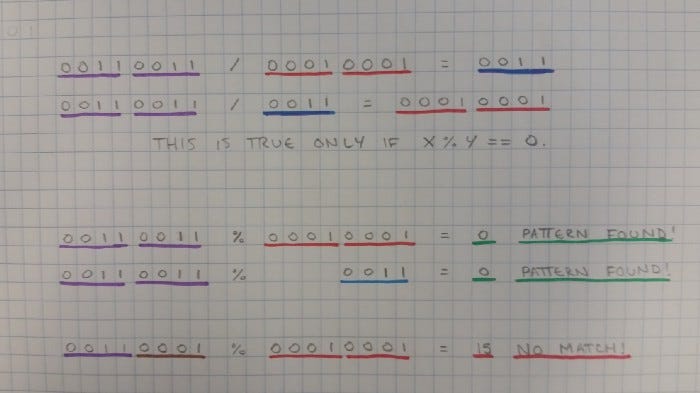 0011 0011 / 0001 0001 = 0011
0011 0011 / 0011 = 0001 0001
THIS IS TRUE ONLY IF X % Y == 0.
0011 0011 % 0001 0001 = 0 PATTERN FOUND!
0011 0011 % 0011 = 0 PATTERN FOUND!
0011 0001 % 0001 0001 = 15 NO MATCH!